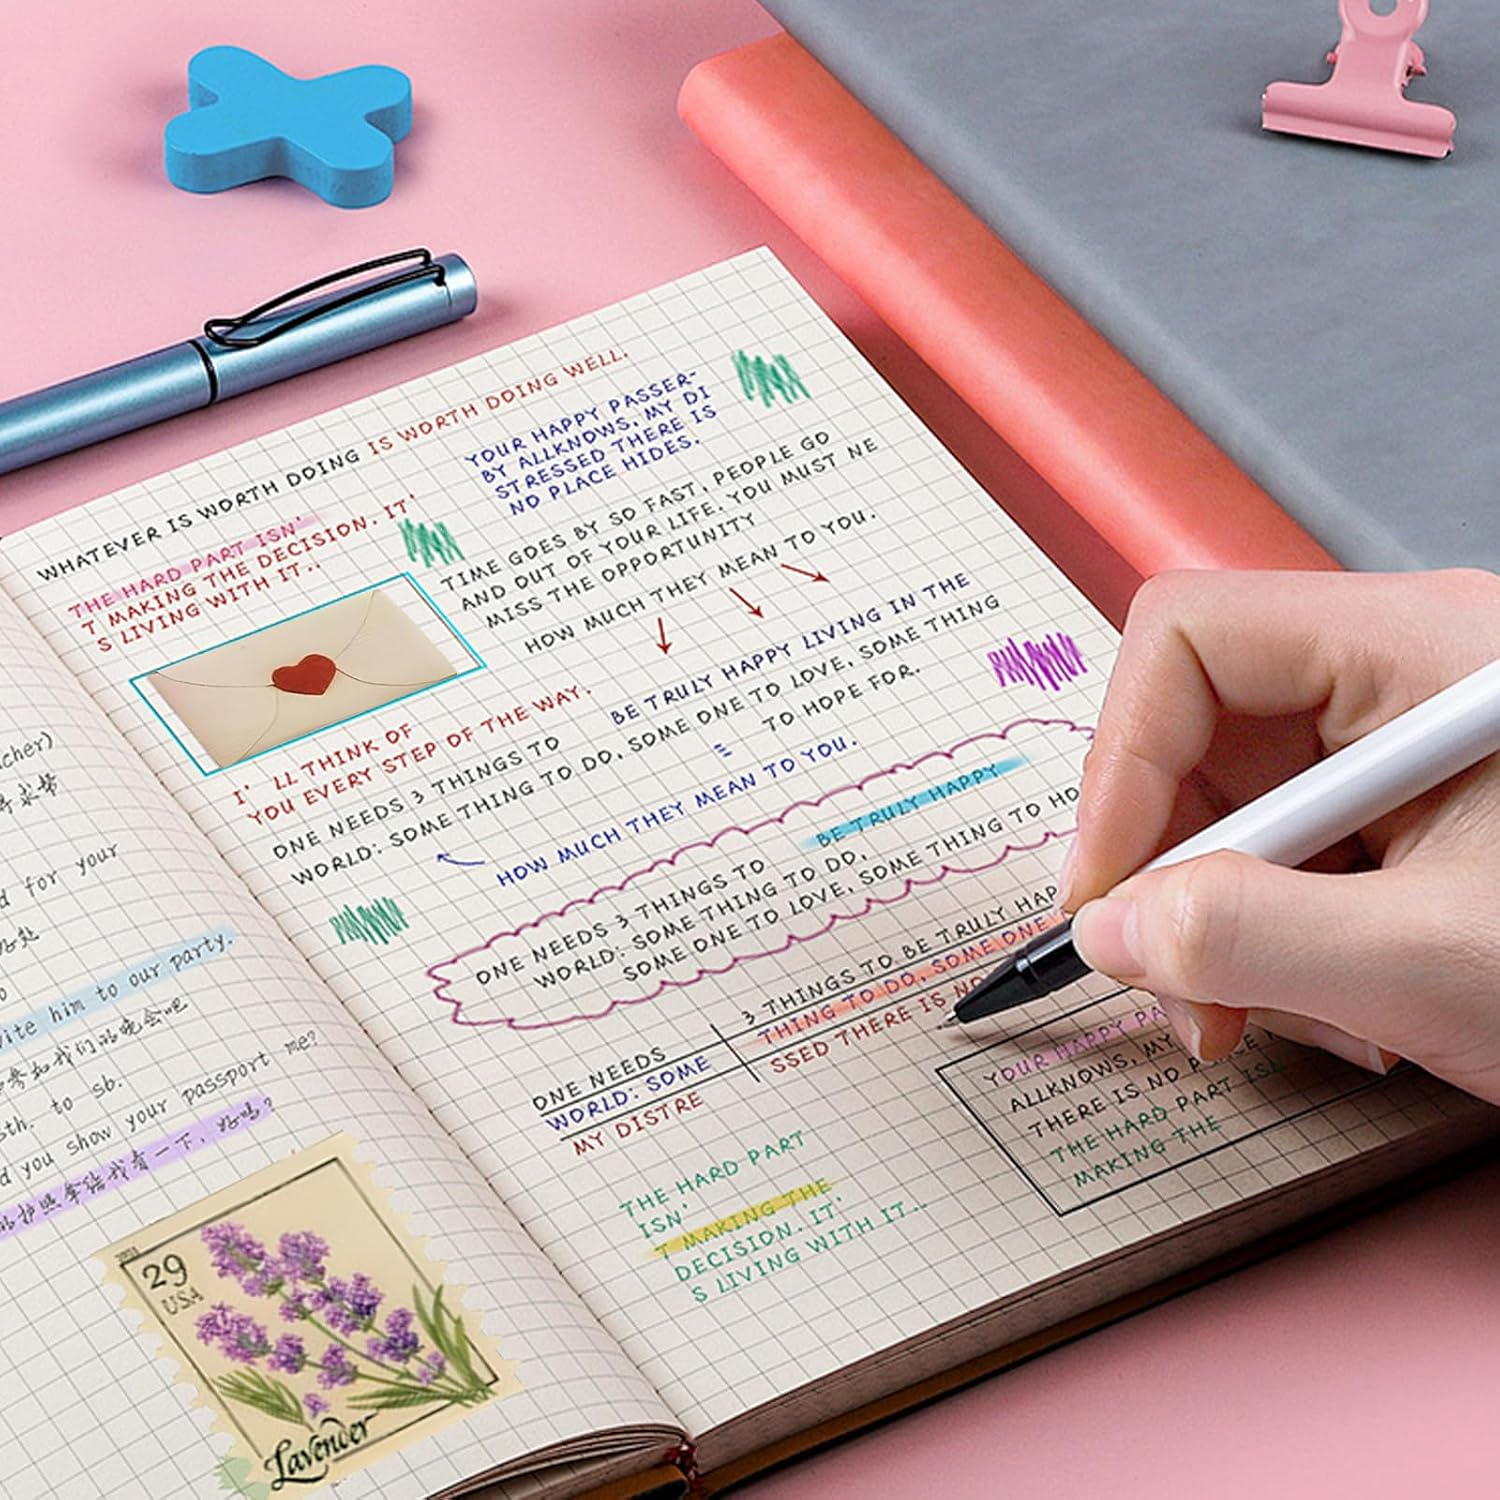 cher)
d for your
ite him to our party.
参加我们的晚会吧
sth. to sb.
d you show your passport me?
护照拿给我看一下,好吗?
29
USA
Lavender
WHATEVER IS WORTH DOING IS WORTH DOING WELL.
YOUR HAPPY PASSER-
BY ALLKNOWS, MY DI
STRESSED THERE IS
NO PLACE HIDES.
THE HARD PART ISN'
T MAKING THE DECISION. IT'
S LIVING WITH IT..
TIME GOES BY SO FAST, PEOPLE GO
AND OUT OF YOUR LIFE. YOU MUST NE
MISS THE OPPORTUNITY
HOW MUCH THEY MEAN TO YOU.
I' LL THINK OF
YOU EVERY STEP OF THE WAY.
BE TRULY HAPPY LIVING IN THE
ONE NEEDS 3 THINGS TO
WORLD: SOME THING TO DO, SOME ONE TO LOVE, SOME THING
= TO HOPE FOR.
HOW MUCH THEY MEAN TO YOU.
BE TRULY HAPPY
ONE NEEDS 3 THINGS TO
WORLD: SOME THING TO DO,
SOME ONE TO LOVE, SOME THING TO HO
ONE NEEDS 3 THINGS TO BE TRULY HAP
WORLD: SOME THING TO DO, SOME ONE
MY DISTRE SSED THERE IS NO
THE HARD PART
ISN'
T MAKING THE
DECISION. IT'
S LIVING WITH IT..
YOUR HAPPY PA
ALLKNOWS, MY
THERE IS NO PLACE
THE HARD PART ISN
MAKING THE